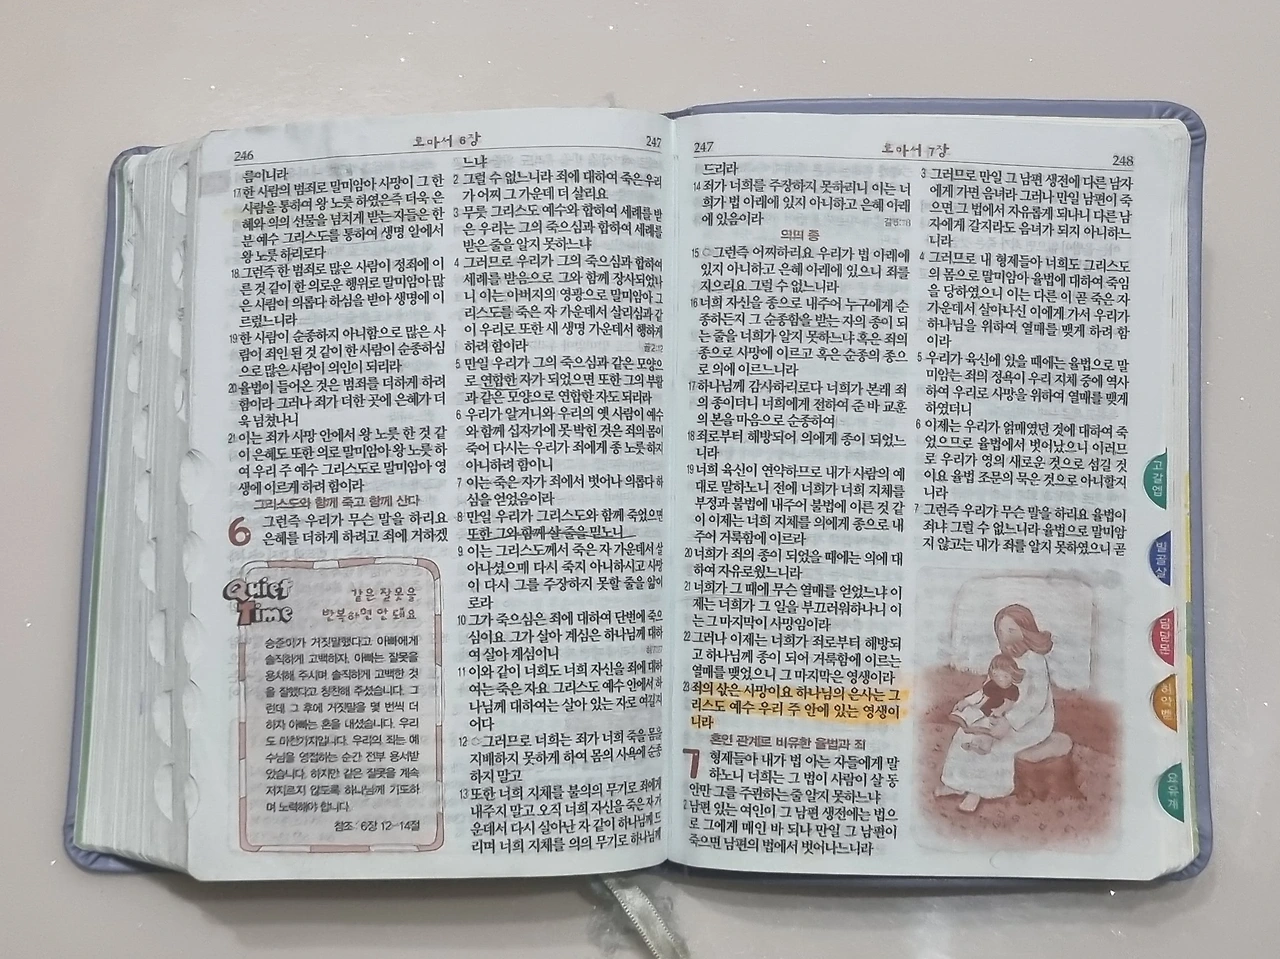 로마서 6장
246
247
름이니라
17 한 사람의 범죄로 말미암아 사망이 그 한
사람을 통하여 왕 노릇 하였은즉 더욱 은
혜와 의의 선물을 넘치게 받는 자들은 한
분 예수 그리스도를 통하여 생명 안에서
왕 노릇 하리로다
18 그런즉 한 범죄로 많은 사람이 정죄에 이
른 것 같이 한 의로운 행위로 말미암아 많
은 사람이 의롭다 하심을 받아 생명에 이
르렀느니라
19 한 사람이 순종하지 아니함으로 많은 사
람이 죄인 된 것 같이 한 사람이 순종하심
으로 많은 사람이 의인이 되리라
20 율법이 들어온 것은 범죄를 더하게 하려
함이라 그러나 죄가 더한 곳에 은혜가 더
욱 넘쳤나니
21 이는 죄가 사망 안에서 왕 노릇 한 것 같
이 은혜도 또한 의로 말미암아 왕 노릇 하
여 우리 주 예수 그리스도로 말미암아 영
생에 이르게 하려 함이라
그리스도와 함께 죽고 함께 산다
6 그런즉 우리가 무슨 말을 하리요
은혜를 더하게 하려고 죄에 거하겠
Quiet
Time
같은 잘못을
반복하면 안 돼요
승준이가 거짓말했다고 아빠에게
솔직하게 고백하자, 아빠는 잘못을
용서해 주시며 솔직하게 고백한 것
을 잘했다고 칭찬해 주셨습니다. 그
런데 그 후에 거짓말을 몇 번씩 더
하자 아빠는 혼을 내셨습니다. 우리
도 마찬가지입니다. 우리의 죄는 예
수님을 영접하는 순간 전부 용서받
았습니다. 하지만 같은 잘못을 계속
저지르지 않도록 하나님께 기도하
며 노력해야 합니다.
참조 : 6장 12-14절
느냐
2 그럴 수 없느니라 죄에 대하여 죽은 우리
가 어찌 그 가운데 더 살리요
3 무릇 그리스도 예수와 합하여 세례를 받
은 우리는 그의 죽으심과 합하여 세례를
받은 줄을 알지 못하느냐
4 그러므로 우리가 그의 죽으심과 합하여
세례를 받음으로 그와 함께 장사되었나
니 이는 아버지의 영광으로 말미암아 그
리스도를 죽은 자 가운데서 살리심과 같
이 우리로 또한 새 생명 가운데서 행하게
하려 함이라 골2:12
5 만일 우리가 그의 죽으심과 같은 모양으
로 연합한 자가 되었으면 또한 그의 부활
과 같은 모양으로 연합한 자도 되리라
6 우리가 알거니와 우리의 옛 사람이 예수
와 함께 십자가에 못 박힌 것은 죄의 몸이
죽어 다시는 우리가 죄에게 종 노릇 하지
아니하려 함이니
7 이는 죽은 자가 죄에서 벗어나 의롭다 하
심을 얻었음이라
8 만일 우리가 그리스도와 함께 죽었으면
또한 그와 함께 살 줄을 믿노니
9 이는 그리스도께서 죽은 자 가운데서 살
아나셨으매 다시 죽지 아니하시고 사망
이 다시 그를 주장하지 못할 줄을 앎이
로라
10 그가 죽으심은 죄에 대하여 단번에 죽으
심이요 그가 살아 계심은 하나님께 대하
여 살아 계심이니
11 이와 같이 너희도 너희 자신을 죄에 대하
여는 죽은 자요 그리스도 예수 안에서 하
나님께 대하여는 살아 있는 자로 여길지
어다
12 그러므로 너희는 죄가 너희 죽을 몸을
지배하지 못하게 하여 몸의 사욕에 순종
하지 말고
13 또한 너희 지체를 불의의 무기로 죄에게
내주지 말고 오직 너희 자신을 죽은 자 가
운데서 다시 살아난 자 같이 하나님께 드
리며 너희 지체를 의의 무기로 하나님께
247
로마서 7장
248
드리라
14 죄가 너희를 주장하지 못하리니 이는 너
희가 법 아래에 있지 아니하고 은혜 아래
에 있음이라
의의 종
15 그런즉 어찌하리요 우리가 법 아래에
있지 아니하고 은혜 아래에 있으니 죄를
지으리요 그럴 수 없느니라
16 너희 자신을 종으로 내주어 누구에게 순
종하든지 그 순종함을 받는 자의 종이 되
는 줄을 너희가 알지 못하느냐 혹은 죄의
종으로 사망에 이르고 혹은 순종의 종으
로 의에 이르느니라
17 하나님께 감사하리로다 너희가 본래 죄
의 종이더니 너희에게 전하여 준 바 교훈
의 본을 마음으로 순종하여
18 죄로부터 해방되어 의에게 종이 되었느
니라
19 너희 육신이 연약하므로 내가 사람의 예
대로 말하노니 전에 너희가 너희 지체를
부정과 불법에 내주어 불법에 이른 것 같
이 이제는 너희 지체를 의에게 종으로 내
주어 거룩함에 이르라
20 너희가 죄의 종이 되었을 때에는 의에 대
하여 자유로웠느니라
21 너희가 그 때에 무슨 열매를 얻었느냐 이
제는 너희가 그 일을 부끄러워하나니 이
는 그 마지막이 사망임이라
22 그러나 이제는 너희가 죄로부터 해방되
고 하나님께 종이 되어 거룩함에 이르는
열매를 맺었으니 그 마지막은 영생이라
23 죄의 삯은 사망이요 하나님의 은사는 그
리스도 예수 우리 주 안에 있는 영생이
니라
혼인 관계로 비유한 율법과 죄
7 형제들아 내가 법 아는 자들에게 말
하노니 너희는 그 법이 사람이 살 동
안만 그를 주관하는 줄 알지 못하느냐
2 남편 있는 여인이 그 남편 생전에는 법으
로 그에게 매인 바 되나 만일 그 남편이
죽으면 남편의 법에서 벗어나느니라
3 그러므로 만일 그 남편 생전에 다른 남자
에게 가면 음녀라 그러나 만일 남편이 죽
으면 그 법에서 자유롭게 되나니 다른 남
자에게 갈지라도 음녀가 되지 아니하느
니라
4 그러므로 내 형제들아 너희도 그리스도
의 몸으로 말미암아 율법에 대하여 죽임
을 당하였으니 이는 다른 이 곧 죽은 자
가운데서 살아나신 이에게 가서 우리가
하나님을 위하여 열매를 맺게 하려 함
이라
5 우리가 육신에 있을 때에는 율법으로 말
미암는 죄의 정욕이 우리 지체 중에 역사
하여 우리로 사망을 위하여 열매를 맺게
하였더니
6 이제는 우리가 얽매였던 것에 대하여 죽
었으므로 율법에서 벗어났으니 이러므
로 우리가 영의 새로운 것으로 섬길 것
이요 율법 조문의 묵은 것으로 아니할지
니라
7 그런즉 우리가 무슨 말을 하리요 율법이
죄냐 그럴 수 없느니라 율법으로 말미암
지 않고는 내가 죄를 알지 못하였으니 곧
고갈엡
빌골살
딤딛몬
히약벧
요유계